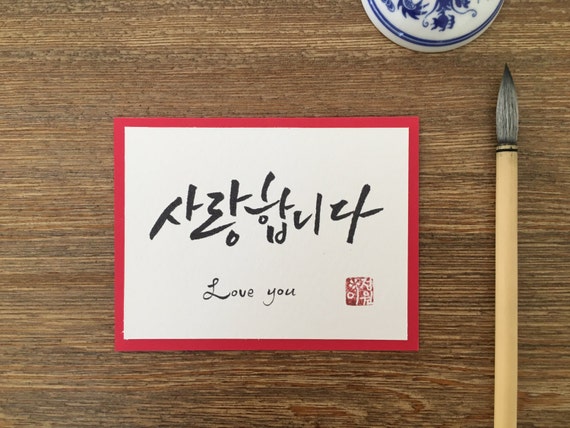 사랑합니다
Love you